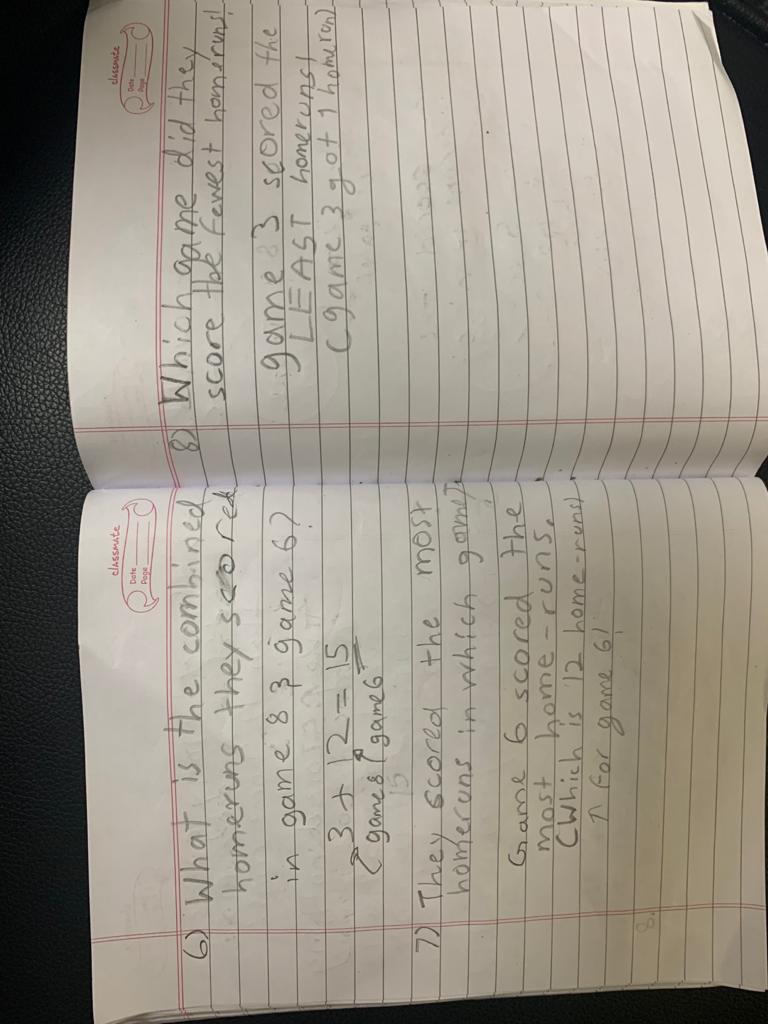 classmate
Date
Page
6) What is the combined
homeruns they scored
in game 8 & game 6?
3 + 12 = 15
game 8 game 6
15
7) They scored the most
homeruns in which game?
Game 6 scored the
most home-runs.
(Which is 12 home-runs)
↑ For game 6!
8.
classmate
Date
Page
8) Which game did they
score the fewest homeruns!
game 3 scored the
LEAST homeruns!
(game 3 got 1 homerun)